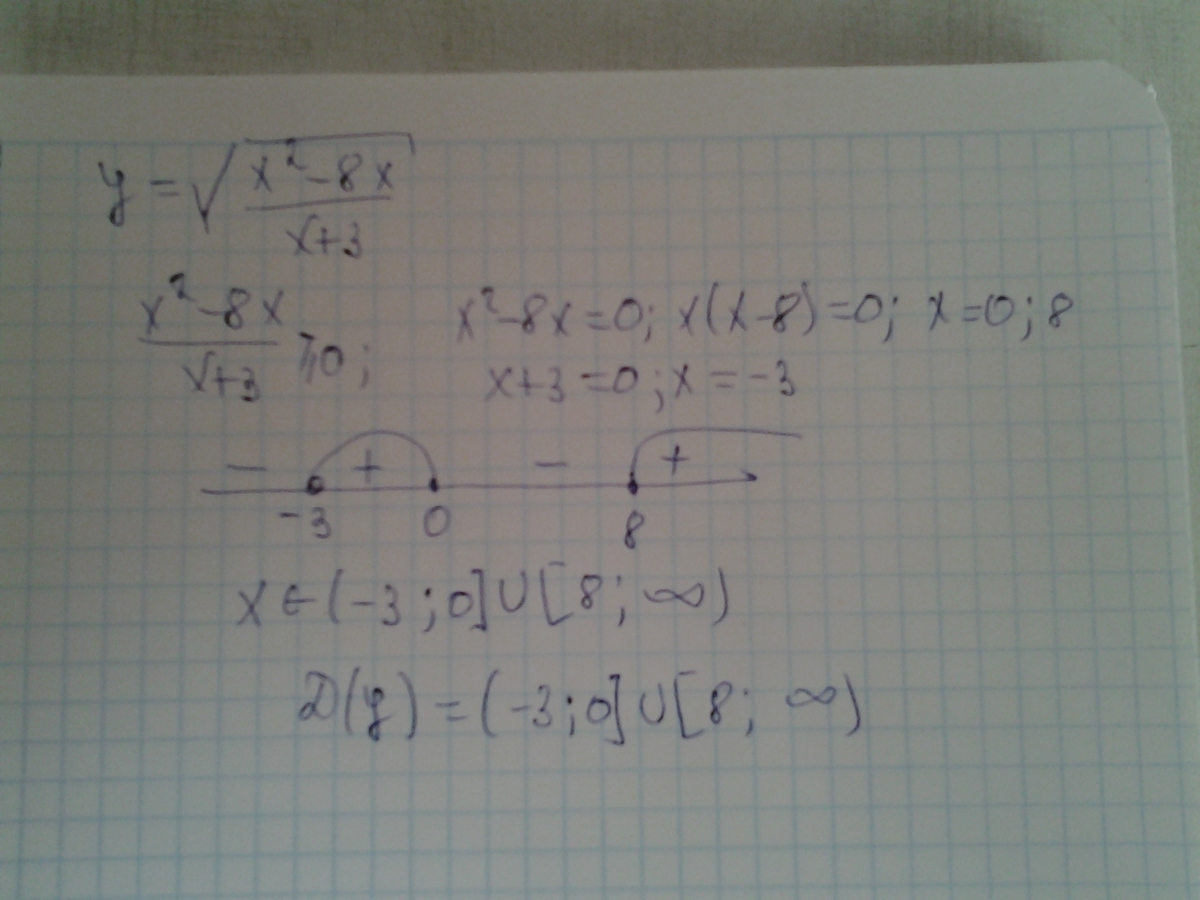 y = √((x² - 8x)/(x+3))
(x² - 8x)/(x+3) ⩾ 0; x² - 8x = 0; x(x-8) = 0; x = 0; 8
x+3 = 0; x = -3
- + - +
-3 0 8
x ∈ (-3; 0] ∪ [8; ∞)
D(y) = (-3; 0] ∪ [8; ∞)